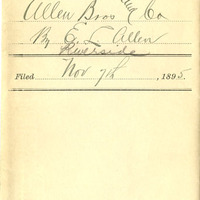 Allen Bros Co
By E. L. Allen
Riverside
Filed Nov 7th, 1895.